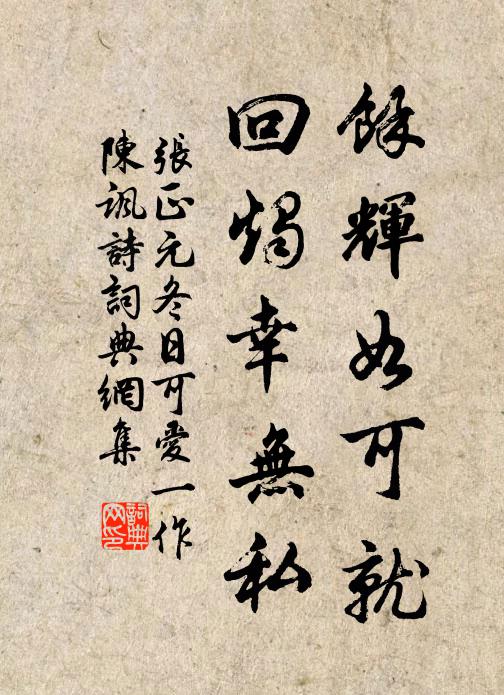 餘輝如可就
回燭幸無私
張正元冬日可愛一作
陳諷詩詞典網集
詞典
网印